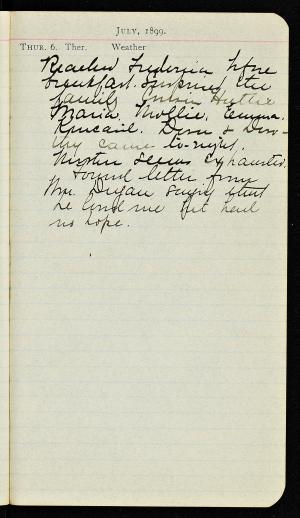 July, 1899.
Thur. 6. Ther. Weather
Reached Fredonia before
breakfast. Surprised the
family
Maria, Mollie, Emma.
Kincaid. Dora & Doro-
thy came to-night.
seems exhausted.
Found letter from
Wm. Dugan saying that
he loved me but had
no hope.